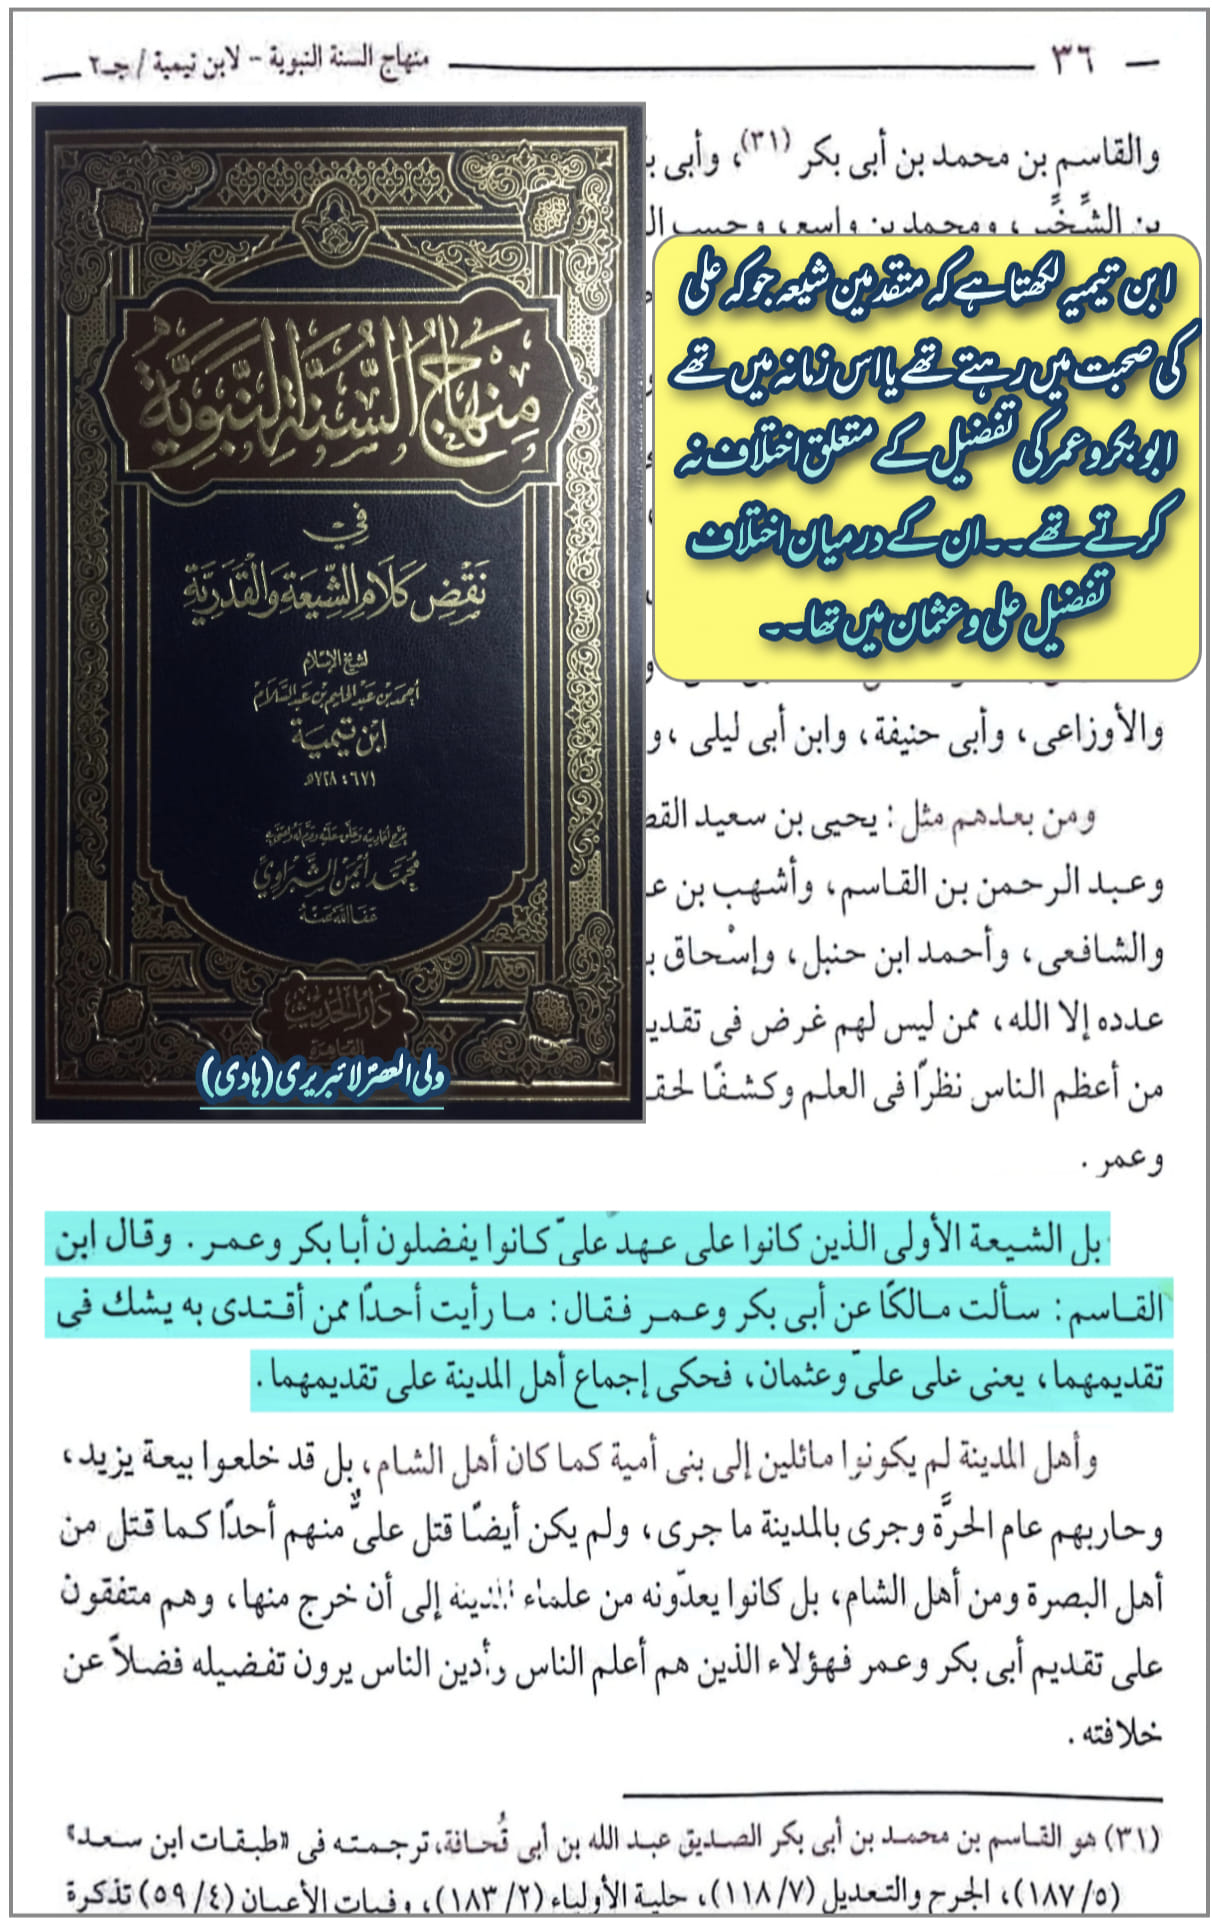 ٣٦ — منهاج السنة النبوية - لابن تيمية / جـ٢
والقاسم بن محمد بن أبى بكر (٣١)، وأبى
بن الشِّخِّير، ومحمد بن واسع، وحبيب
ابن تیمیہ لکھتا ہے کہ متقدمین شیعہ جو کہ علی
کی صحبت میں رہتے تھے یا اس زمانہ میں تھے
ابو بکر و عمر کی تفضیل کے متعلق اختلاف نہ
کرتے تھے۔۔ان کے درمیان اختلاف
تفضیل علی و عثمان میں تھا۔۔
مِنهَاجُ السُّنَّةِ النَّبَوِيَّة
فِي
نَقْضِ كَلَامِ الشِّيعَةِ وَالْقَدَرِيَّة
لشيخ الإسلام
أحمد بن عبد الحليم بن عبد السلام
ابن تيمية
٦٦١ : ٧٢٨هـ
خرج أحاديثه وعلق عليه وقدم له واعتنى به
محمد أيمن الشبراوي
عفا الله عنه
دار الحديث
القاهرة
ولی العصرؑ لائبریری (ہادی)
والأوزاعى، وأبى حنيفة، وابن أبى ليلى ،
ومن بعدهم مثل: يحيى بن سعيد
وعبد الرحمن بن القاسم، وأشهب بن
والشافعى، وأحمد ابن حنبل، وإسْحاق
عدده إلا الله، ممن ليس لهم غرض فى
من أعظم الناس نظرًا فى العلم وكشفًا
وعمر .
بل الشيعة الأولى الذين كانوا على عهد علىّ كانوا يفضلون أبا بكر وعمر . وقال ابن
القاسم: سألت مالكًا عن أبى بكر وعمر فقال: ما رأيت أحدًا ممن أقتدى به يشك فى
تقديمهما، يعنى على علىّ وعثمان، فحكى إجماع أهل المدينة على تقديمهما.
وأهل المدينة لم يكونوا مائلين إلى بنى أمية كما كان أهل الشام، بل قد خلعوا بيعة يزيد،
وحاربهم عام الحرَّة وجرى بالمدينة ما جرى، ولم يكن أيضًا قتل علىٌّ منهم أحدًا كما قتل من
أهل البصرة ومن أهل الشام، بل كانوا يعدّونه من علماء المدينة إلى أن خرج منها، وهم متفقون
على تقديم أبى بكر وعمر فهؤلاء الذين هم أعلم الناس وأدين الناس يرون تفضيله فضلاً عن
خلافته .
(٣١) هو القاسم بن محمد بن أبى بكر الصديق عبد الله بن أبى قُحافة، ترجمته فى «طبقات ابن سعد»
(٥/ ١٨٧)، الجرح والتعديل (٧/ ١١٨)، حلية الأولياء (٢/ ١٨٣)، وفيات الأعيان (٤/ ٥٩) تذكرة